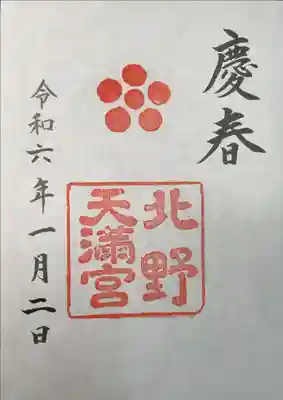 慶春
北野
天満宮
令和六年一月二日